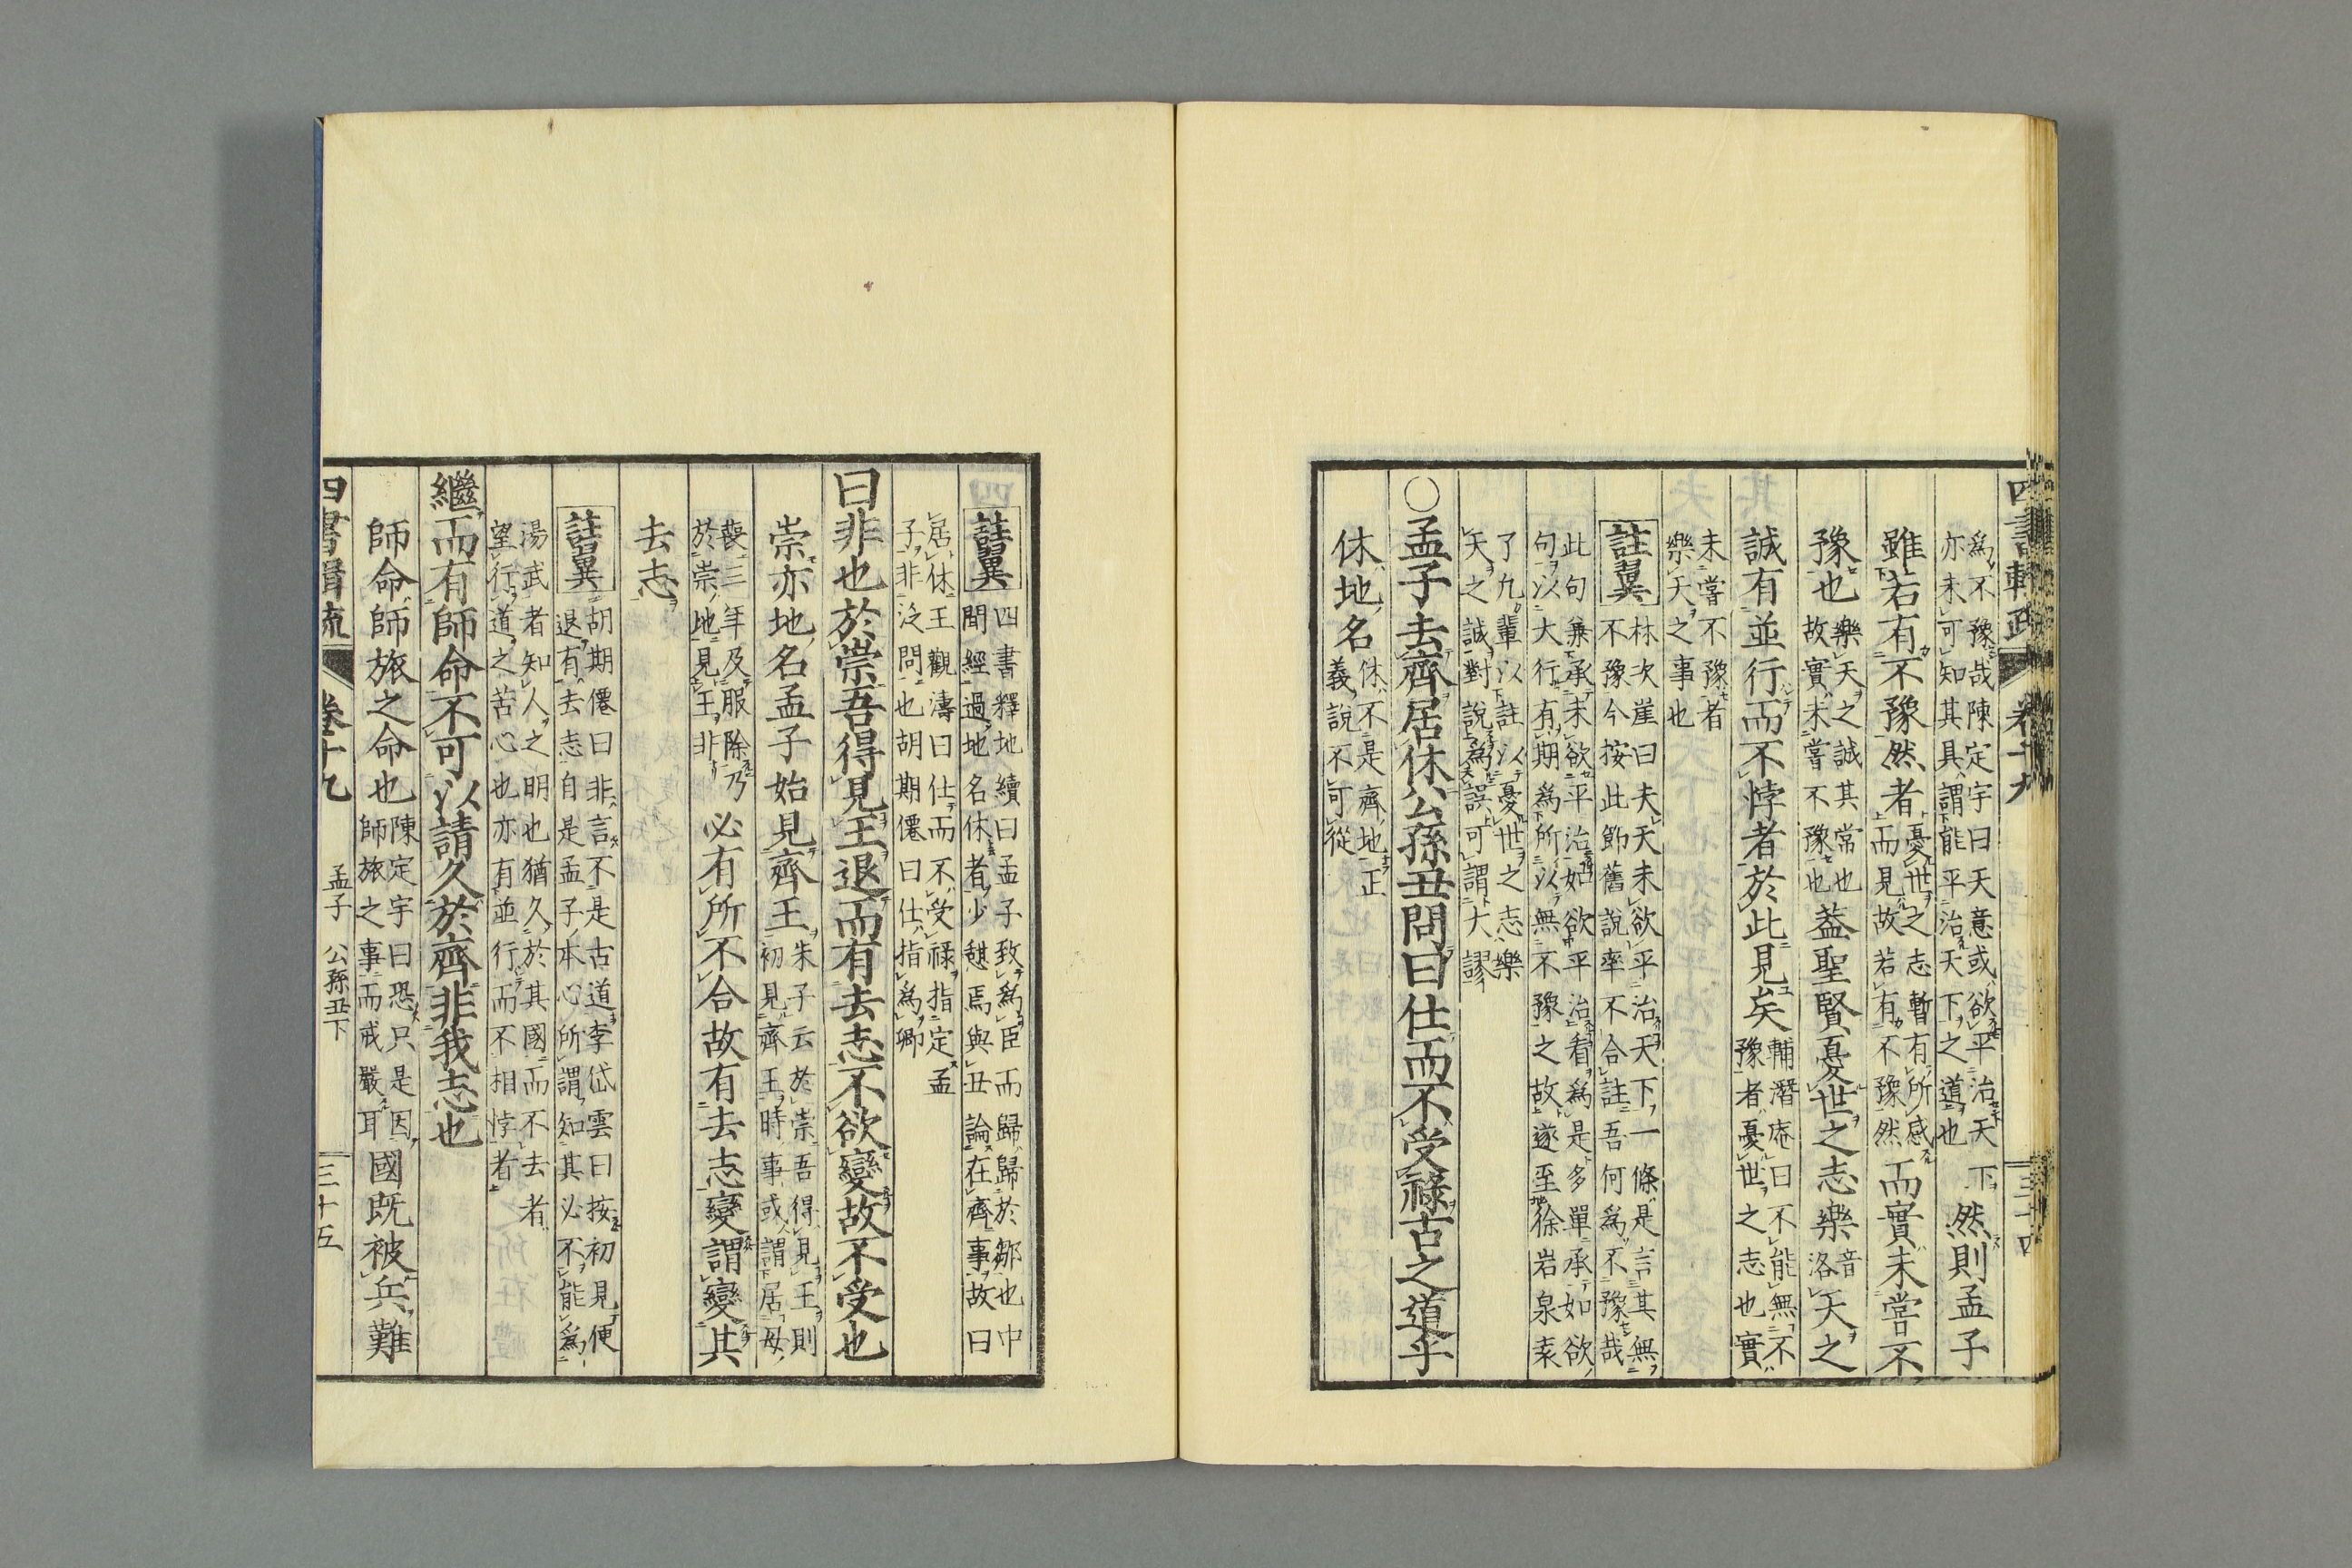 為不豫哉陳定宇曰天意或欲平治天下
亦未可知其具謂能平治天下之道也
然則孟子
雖若有不豫然者
憂世之志暫有所感
而見故若有不豫然
而實未嘗不
豫也
樂天之誠其常也
故實未嘗不豫也
蓋聖賢憂世之志樂
音
洛
天之
誠有並行而不悖者於此見矣
輔潛庵曰不能無不
豫者憂世之志也實
未嘗不豫者
樂天之事也
註翼
林次崖曰夫天未欲平治天下一條是言其無
不豫今按此節舊說率不合註吾何為不豫哉
此句兼承未欲平治如欲平治看為是多單承如欲
句以大行有期為所以無不豫之故遂至徐岩泉袁
了凡輩以註以憂世之志樂
天之誠對說為誤可謂大謬
○孟子去齊居休公孫丑問曰仕而不受祿古之道乎
休地名
休不是齊地正
義說不可從
四書輯疏 卷十九 三十四
註翼
四書釋地續曰孟子致為臣而歸歸於鄒也中
間經過地名休者少憩焉與丑論在齊事故曰
居休王觀濤曰仕而不受祿指定孟
子非泛問也胡期僊曰仕指為卿
曰非也於崇吾得見王退而有去志不欲變故不受也
崇亦地名孟子始見齊王
朱子云於崇吾得見王則
初見齊王時事或謂居母
喪三年及服除乃
於崇地見王非
必有所不合故有去志變謂變其
去志
註翼
胡期僊曰非言不是古道李岱雲曰按初見便
退有去志自是孟子本心所謂知其必不能為
湯武者知人之明也猶久於其國而不去者
望行道之苦心也亦有並行而不相悖者
繼而有師命不可以請久於齊非我志也
師命師旅之命也
陳定宇曰恐只是因
師旅之事而戒嚴耳
國既被兵難
四書輯疏 卷十九 孟子 公孫丑下 三十五